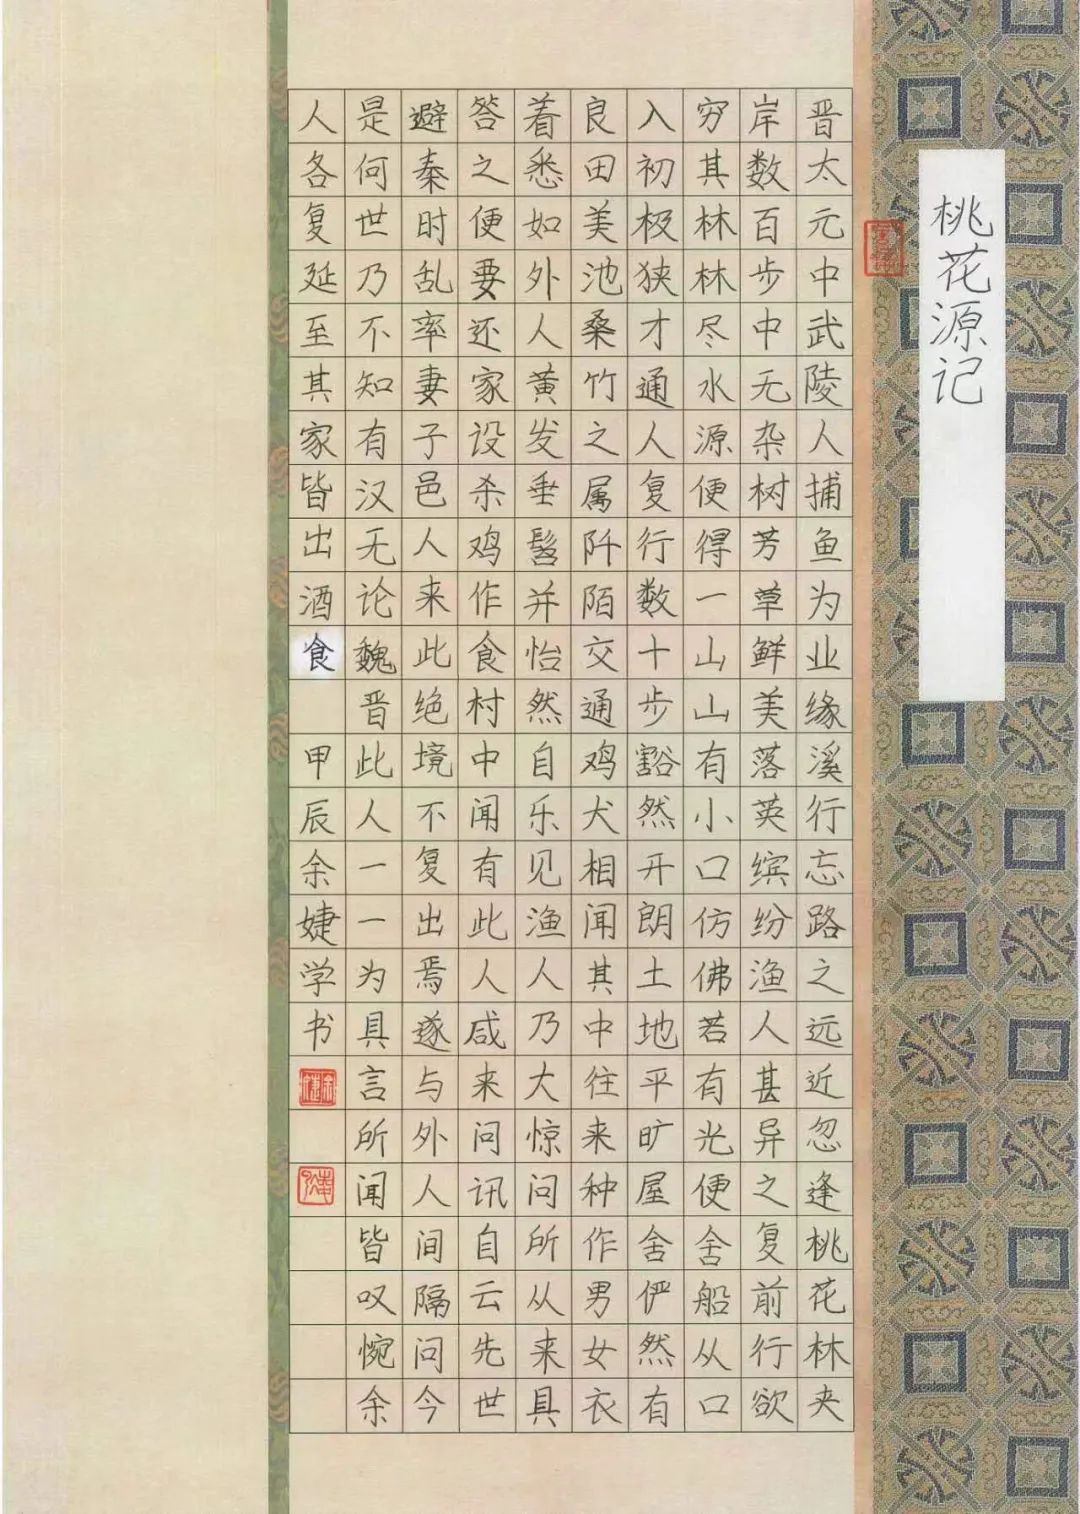 桃花源记
晋太元中武陵人捕鱼为业缘溪行忘路之远近忽逢桃花林夹
岸数百步中无杂树芳草鲜美落英缤纷渔人甚异之复前行欲
穷其林林尽水源便得一山山有小口仿佛若有光便舍船从口
入初极狭才通人复行数十步豁然开朗土地平旷屋舍俨然有
良田美池桑竹之属阡陌交通鸡犬相闻其中往来种作男女衣
着悉如外人黄发垂髫并怡然自乐见渔人乃大惊问所从来具
答之便要还家设杀鸡作食村中闻有此人咸来问讯自云先世
避秦时乱率妻子邑人来此绝境不复出焉遂与外人间隔问今
是何世乃不知有汉无论魏晋此人一一为具言所闻皆叹惋余
人各复延至其家皆出酒食
甲辰余婕学书
余婕